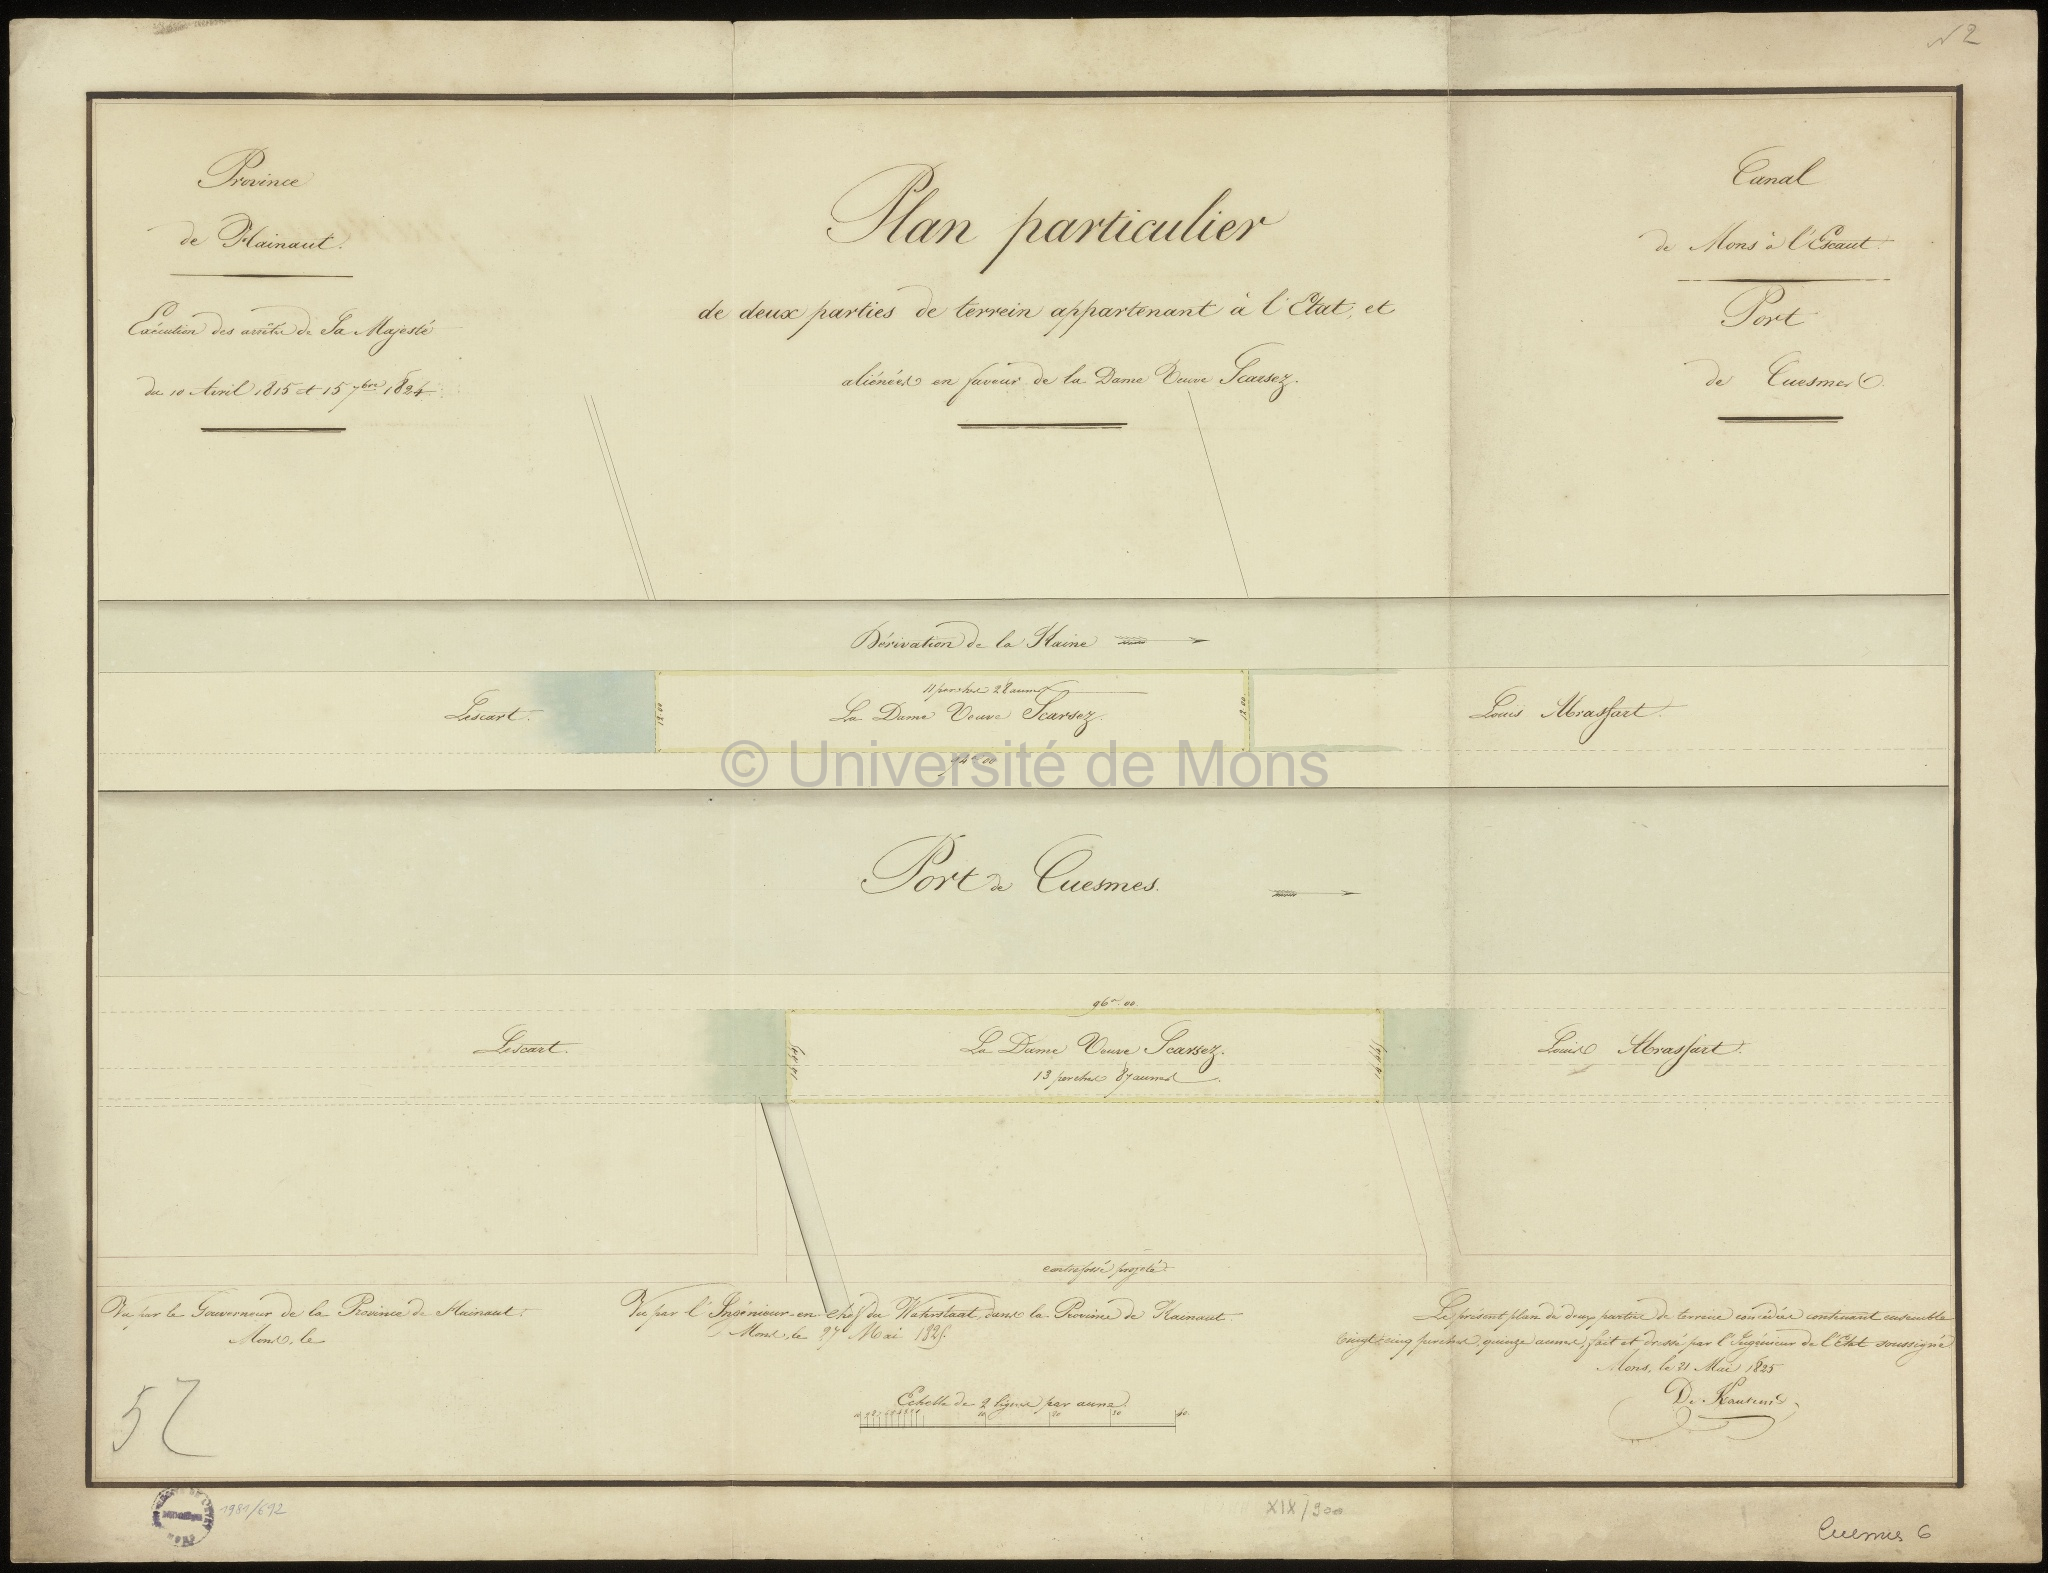 N 2
Province
de Hainaut.
Exécution des arrêtés de Sa Majesté
du 10 Avril 1815 et 15 7bre 1824.
Plan particulier
de deux parties de terrein appartenant à l'Etat, et
aliénées en faveur de la Dame Veuve Scarsez.
Canal
de Mons à l'Escaut.
Port
de Cuesmes.
Dérivation de la Haine
11 perches 28 aunes
Lescart.
12.00
La Dame Veuve Scarsez.
12.00
Louis Abrassart.
94 a. 00
© Université de Mons
Port de Cuesmes.
96 a. 00.
Lescart.
La Dame Veuve Scarsez.
Louis Abrassart.
13 perches 87 aunes
contrefossé projeté.
Vu par le Gouverneur de la Province de Hainaut.
Mons, le
Vu par l'Ingénieur-en-chef du Waterstaat dans la Province de Hainaut.
Mons, le 27 Mai 1825.
Le présent plan de deux parties de terrein concédées contenant ensemble
vingt-cinq perches, quinze aunes, fait et dressé par l'Ingénieur de l'Etat soussigné
Mons, le 21 Mai 1825
Echelle de 2 lignes par aune.
10 20 30 40
52
1981/692
XIX/300
Cuesmes 6